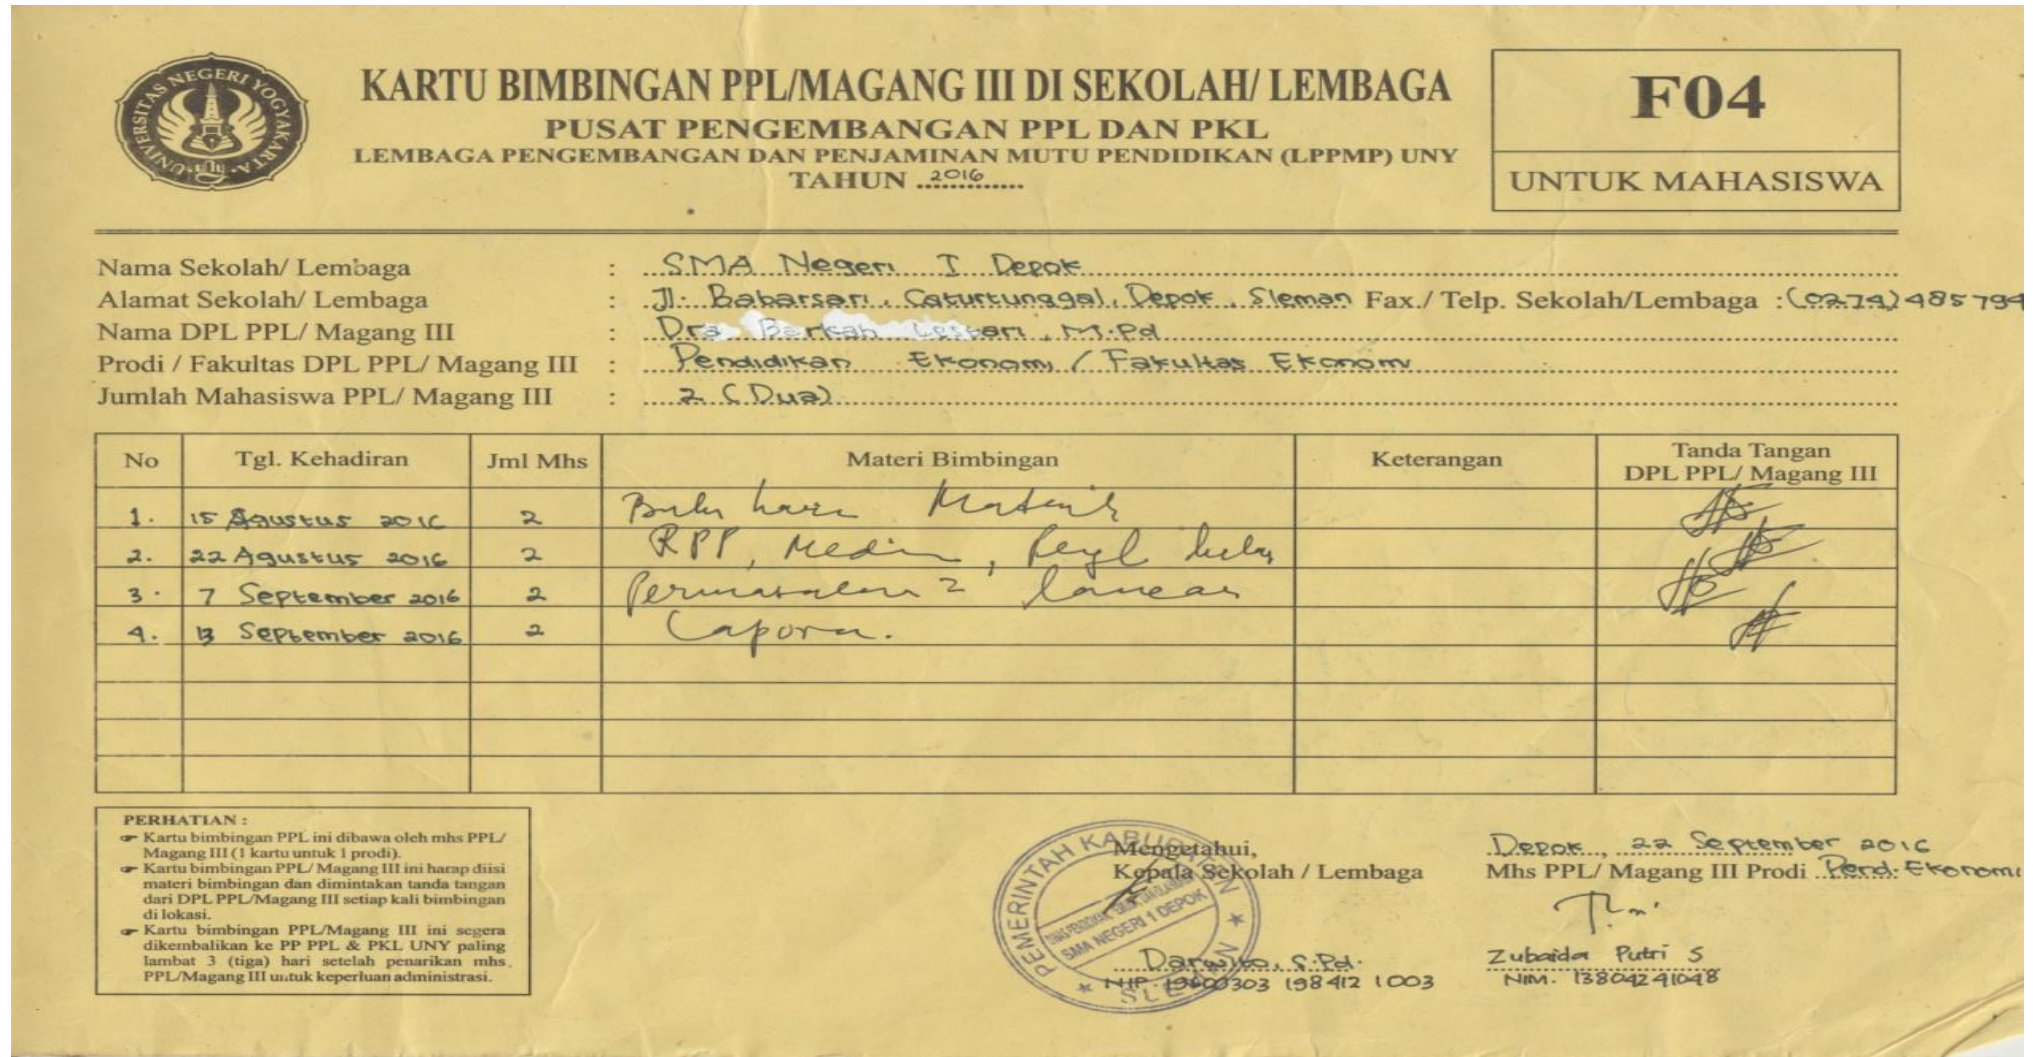 UNIVERSITAS NEGERI YOGYAKARTA
KARTU BIMBINGAN PPL/MAGANG III DI SEKOLAH/ LEMBAGA
PUSAT PENGEMBANGAN PPL DAN PKL
LEMBAGA PENGEMBANGAN DAN PENJAMINAN MUTU PENDIDIKAN (LPPMP) UNY
TAHUN 2016
F04
UNTUK MAHASISWA
Nama Sekolah/ Lembaga : SMA Negeri I Depok
Alamat Sekolah/ Lembaga : Jl. Babarsari, Caturtunggal, Depok, Sleman Fax./ Telp. Sekolah/Lembaga : (0274) 485794
Nama DPL PPL/ Magang III : Dra Barkah Lestari, M.Pd
Prodi / Fakultas DPL PPL/ Magang III : Pendidikan Ekonomi / Fakultas Ekonomi
Jumlah Mahasiswa PPL/ Magang III : 2 (Dua)
No Tgl. Kehadiran Jml Mhs Materi Bimbingan Keterangan Tanda Tangan DPL PPL/ Magang III
1. 15 Agustus 2016 2
2. 22 Agustus 2016 2 RPP, Media,
3. 7 September 2016 2
4. 13 September 2016 2
PERHATIAN :
Kartu bimbingan PPL ini dibawa oleh mhs PPL/
Magang III (1 kartu untuk 1 prodi).
Kartu bimbingan PPL/ Magang III ini harap diisi
materi bimbingan dan dimintakan tanda tangan
dari DPL PPL/Magang III setiap kali bimbingan
di lokasi.
Kartu bimbingan PPL/Magang III ini segera
dikembalikan ke PP PPL & PKL UNY paling
lambat 3 (tiga) hari setelah penarikan mhs.
PPL/Magang III untuk keperluan administrasi.
Mengetahui,
Kepala Sekolah / Lembaga
PEMERINTAH KABUPATEN
SMA NEGERI 1 DEPOK
Darwito, S.Pd.
NIP. 19600303 198412 1 003
Depok, 22 September 2016
Mhs PPL/ Magang III Prodi Pend. Ekonomi
Zubaida Putri S
NIM. 13804241048